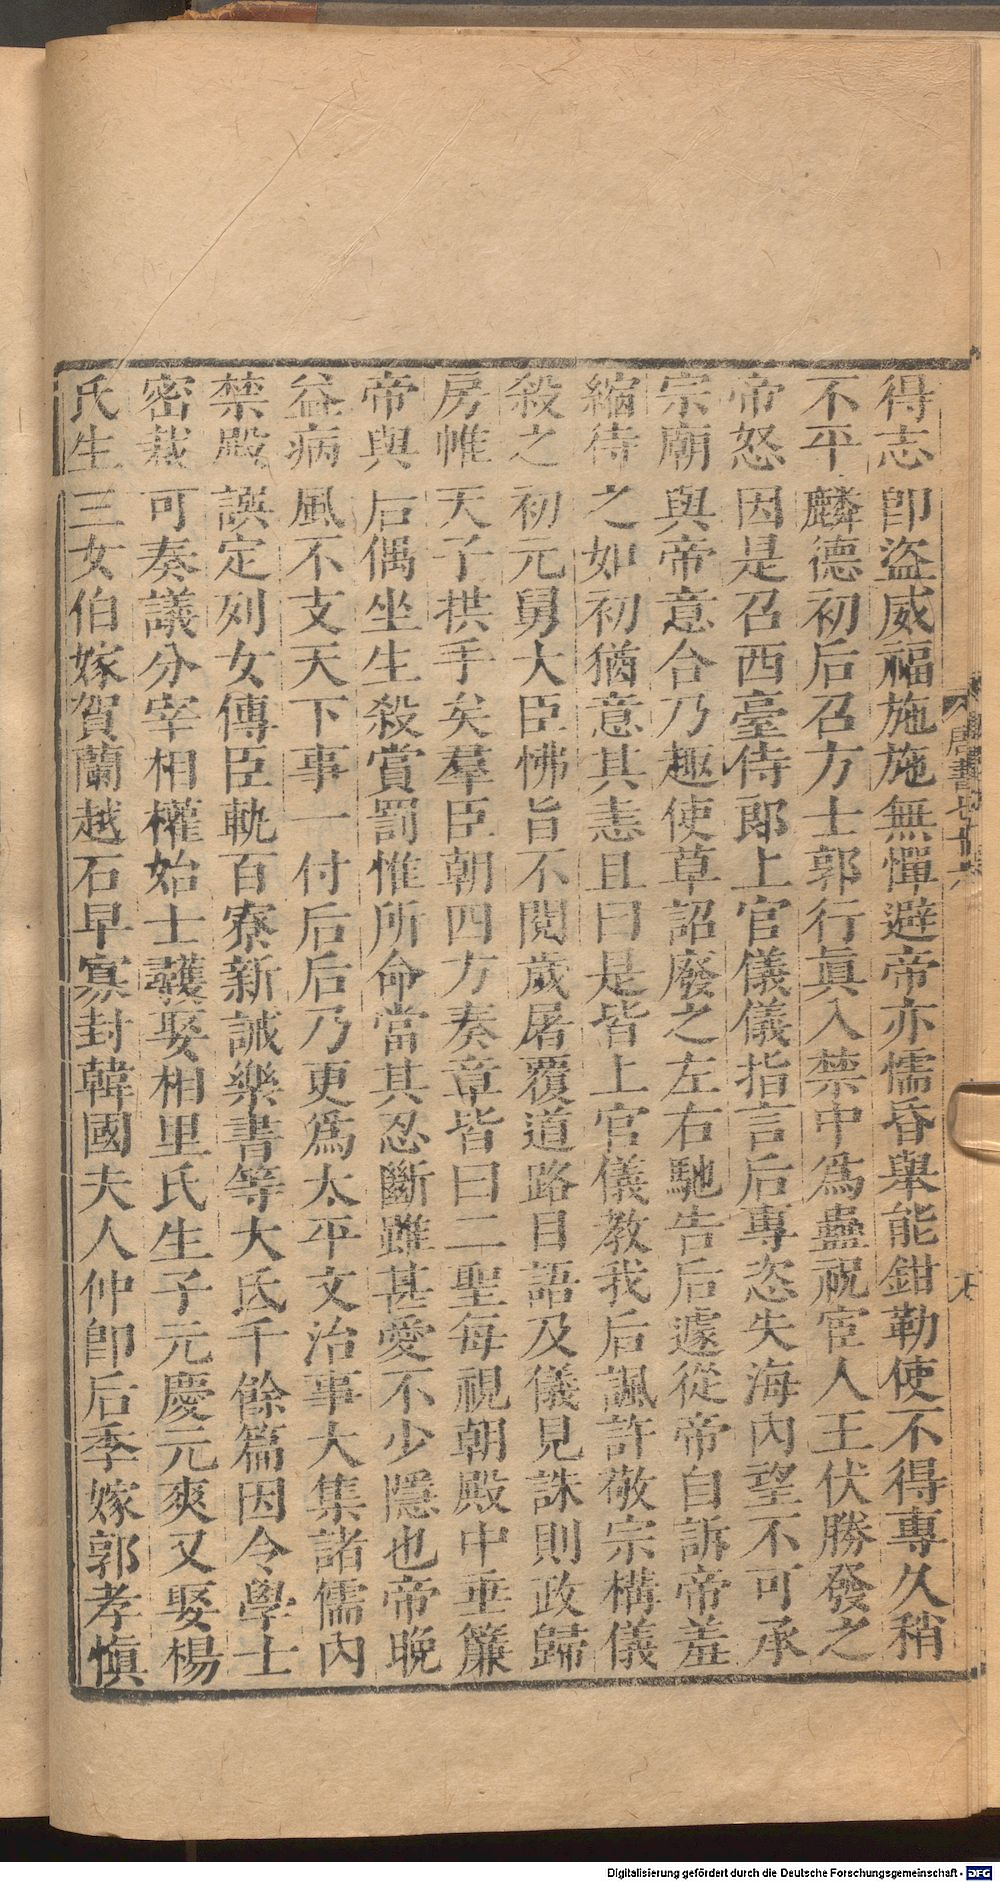 得志卽盜威福施施無憚避帝亦懦昏舉能鉗勒使不得專久稍
不平麟德初后召方士郭行眞入禁中爲蠱祝宦人王伏勝發之
帝怒因是召西臺侍郎上官儀儀指言后專恣失海內望不可承
宗廟與帝意合乃趣使草詔廢之左右馳告后遽從帝自訴帝羞
縮待之如初猶意其恚且曰是皆上官儀教我后諷許敬宗構儀
殺之初元舅大臣怫旨不閱歲屠覆道路目語及儀見誅則政歸
房帷天子拱手矣羣臣朝四方奏章皆曰二聖每視朝殿中垂簾
帝與后偶坐生殺賞罰惟所命當其忍斷雖甚愛不少隱也帝晚
益病風不支天下事一付后后乃更爲太平文治事大集諸儒內
禁殿譔定列女傳臣軌百寮新誡樂書等大氐千餘篇因令學士
密裁可奏議分宰相權始士彠娶相里氏生子元慶元爽又娶楊
氏生三女伯嫁賀蘭越石早寡封韓國夫人仲卽后季嫁郭孝愼
唐書七十六
Digitalisierung gefördert durch die Deutsche Forschungsgemeinschaft - DFG